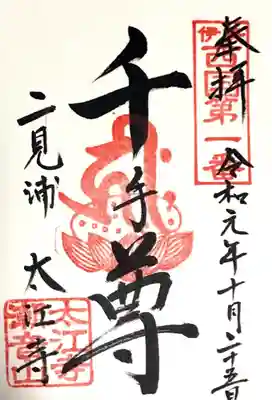 奉拝
令和元年十月二十五日
伊西国第一番
千手尊
二見浦
太江寺
太江寺